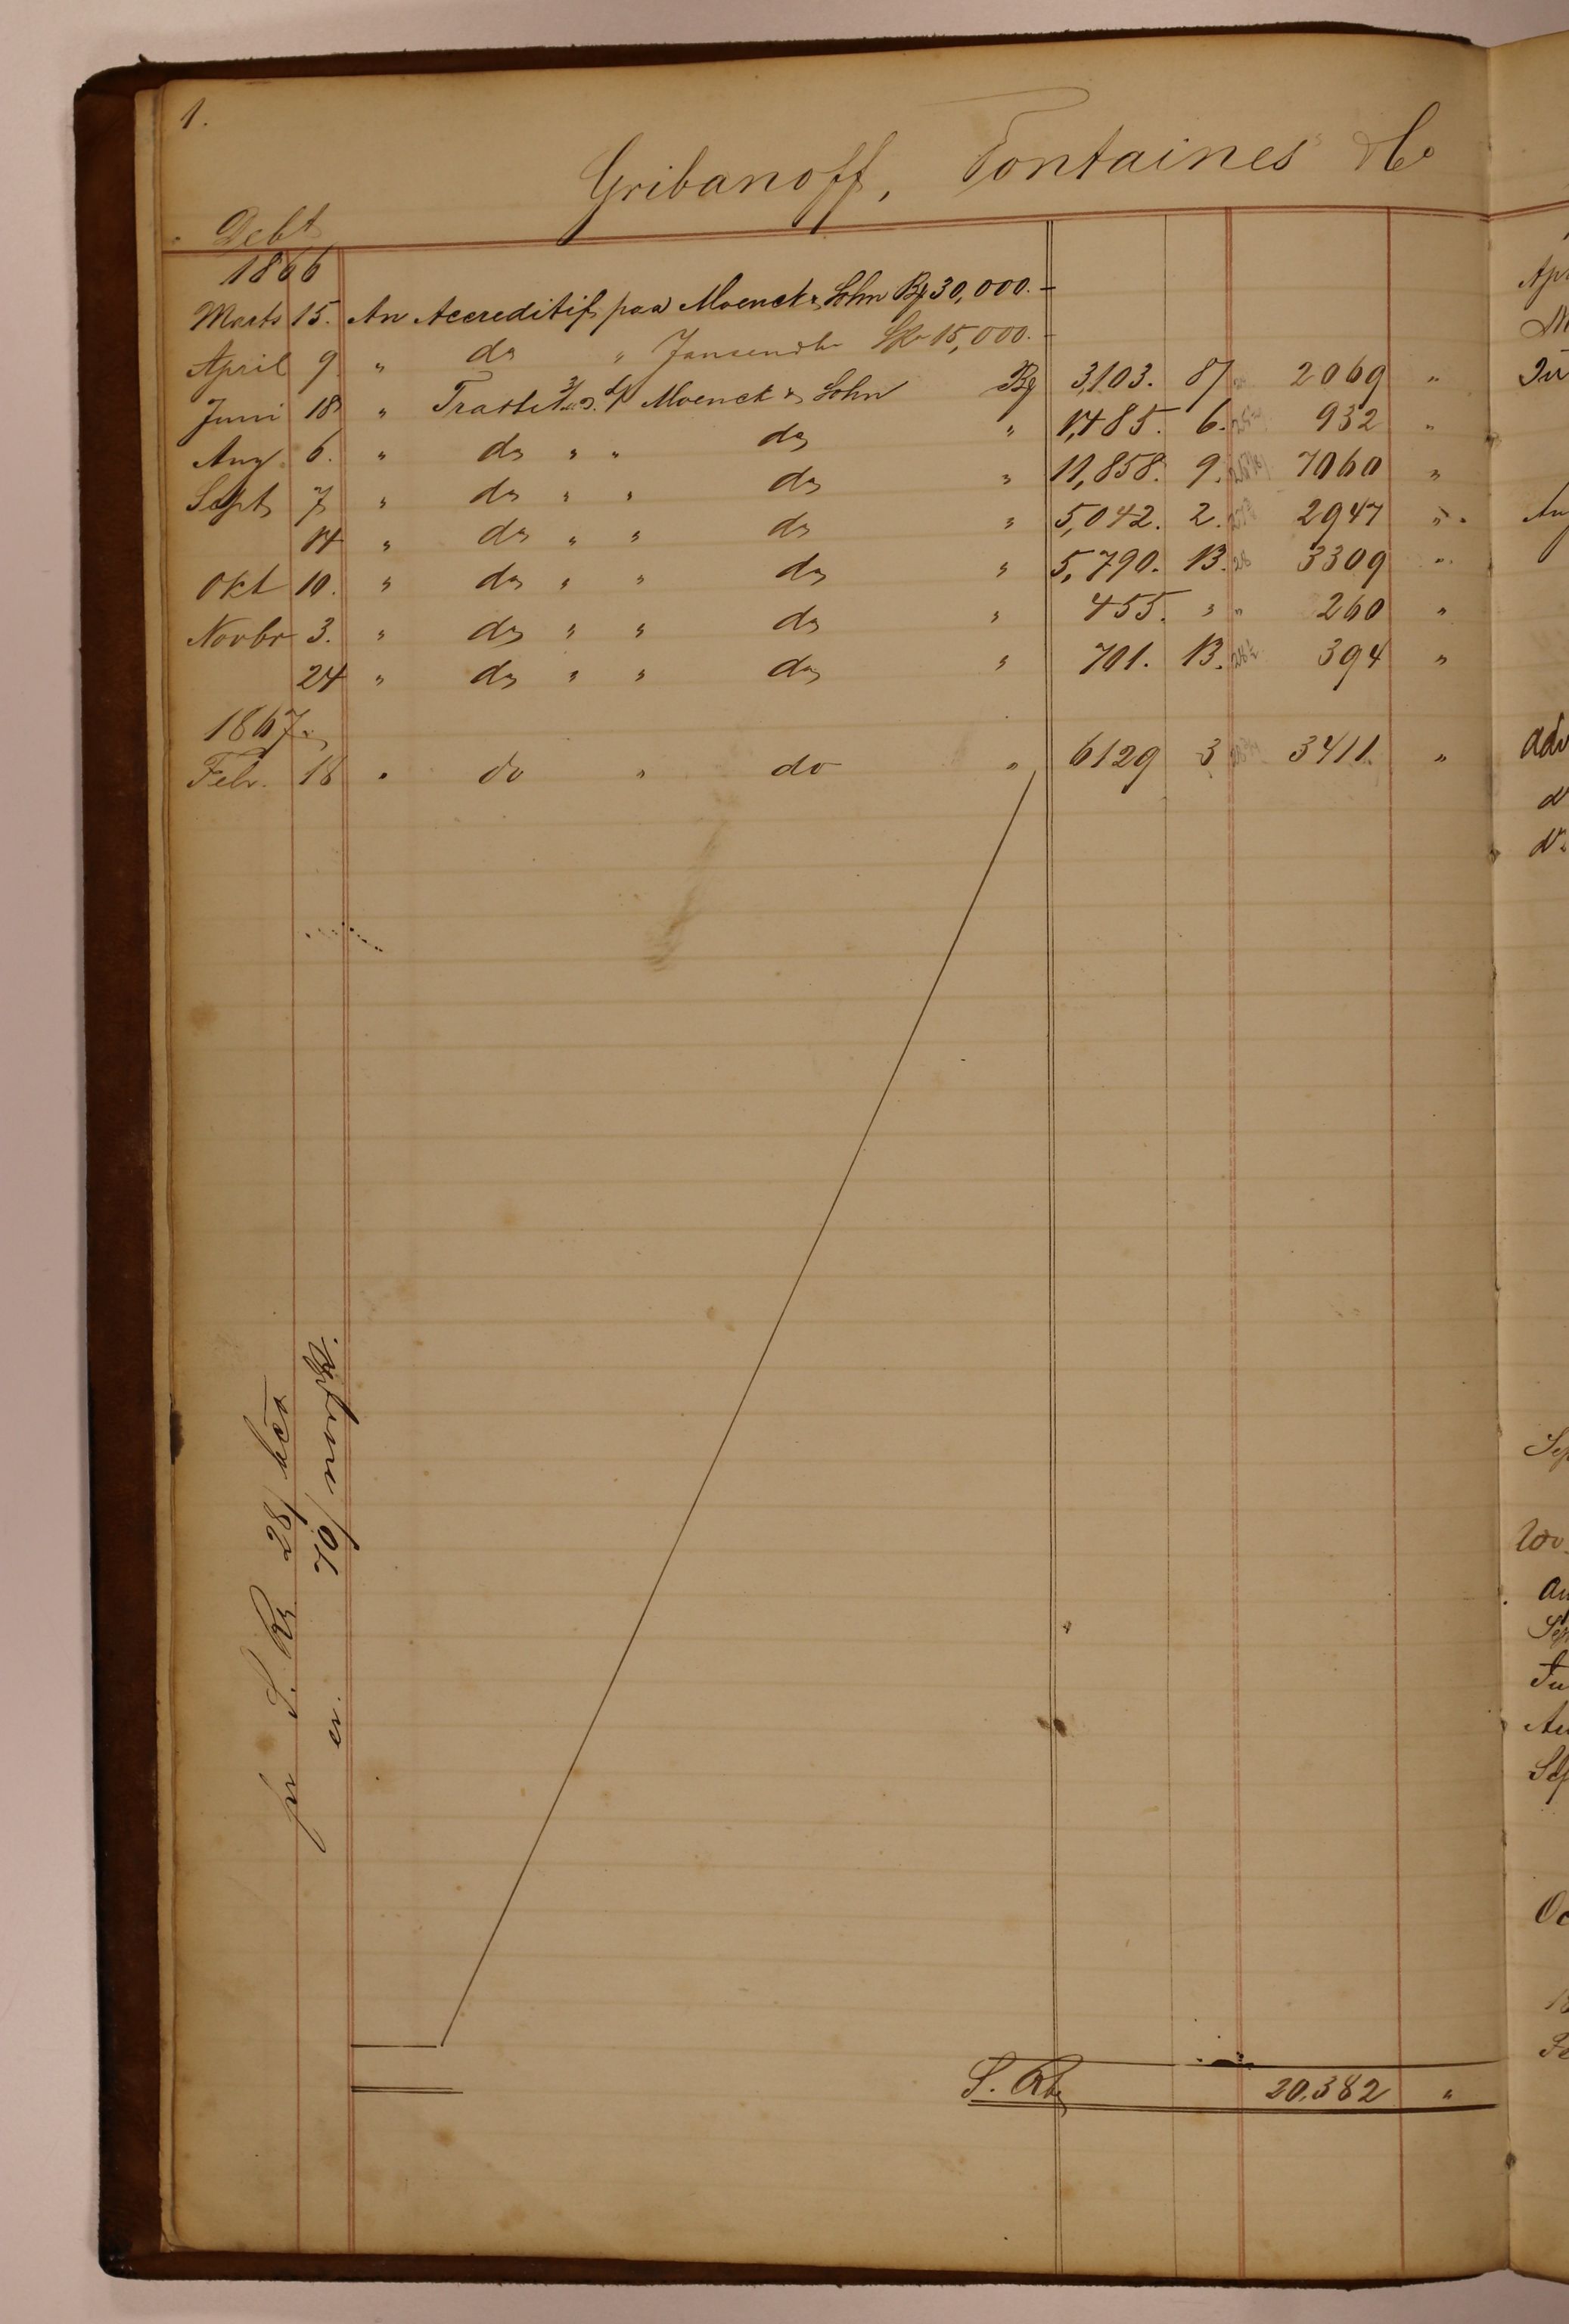 1.
Gribanoff, Fontaines & Co
Debt
1866
Marts 15. An Accreditif paa Moenck & Sohn B 30,000.-
April 9 " do " Jansen & Co 15,000.-
Juni 18 " Tratte Moenck & Sohn B 3,103. 8 2069 "
Aug. 6. " do " " do " 1,485. 6. 932 "
Sept 7 " do " " do " 11,858. 9. 7060 "
14 " do " " do " 5,042. 2. 2947 "
Okt 10. " do " " do " 5,790. 13. 28 3309 "
Novbr 3. " do " " do " 455. " " 260 "
24 " do " " do " 701. 13. 28½ 394 "
1867.
Febr. 18 " do " do " 6129 3 3411. "
pr S. R 28/ bco
er. 70/
S. Rb 20,382 "
Apr
Au
adv
d
Sep
Au
Sep
Au
Sep
Oc
Fe